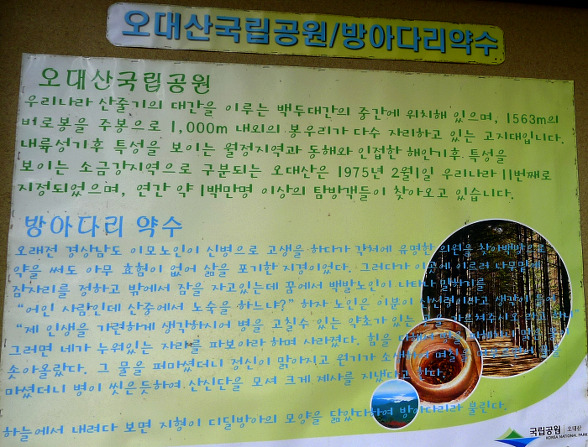 오대산국립공원/방아다리약수
오대산국립공원
우리나라 산줄기의 대간을 이루는 백두대간의 중간에 위치해 있으며, 1563m의
비로봉을 주봉으로 1,000m 내외의 봉우리가 다수 자리하고 있는 고지대입니다.
내륙성기후 특성을 보이는 월정지역과 동해와 인접한 해안기후 특성을
보이는 소금강지역으로 구분되는 오대산은 1975년 2월1일 우리나라 11번째로
지정되었으며, 연간 약 1백만명 이상의 탐방객들이 찾아오고 있습니다.
방아다리 약수
오래전 경상남도 이모노인이 신병으로 고생을 하다가 각처에 유명한 의원을 찾아 백방으로
약을 써도 아무 효험이 없어 삶을 포기한 지경이었다. 그러다가 이곳에 이르러 나무밑에
잠자리를 정하고 밖에서 잠을 자고있는데 꿈에서 백발노인이 나타나 말하기를
"어인 사람인데 산중에서 노숙을 하느냐?" 하자 노인은 이분이 산신령이라고 생각이 들어
"제 인생을 가련하게 생각하시어 병을 고칠수 있는 약초가 있는
그러면 네가 누워있는 자리를 파보아라 하며 사라졌다. 힘을
솟아올랐다. 그 물을 퍼마셨더니 정신이 맑아지고 원기가
마셨더니 병이 씻은듯하여 산신단을 모셔 크게 제사를 지냈다고 한다.
하늘에서 내려다 보면 지형이 디딜방아의 모양을 닮았다하여 방아다리라 불린다.
국립공원 오대산
KOREA NATIONAL PARK